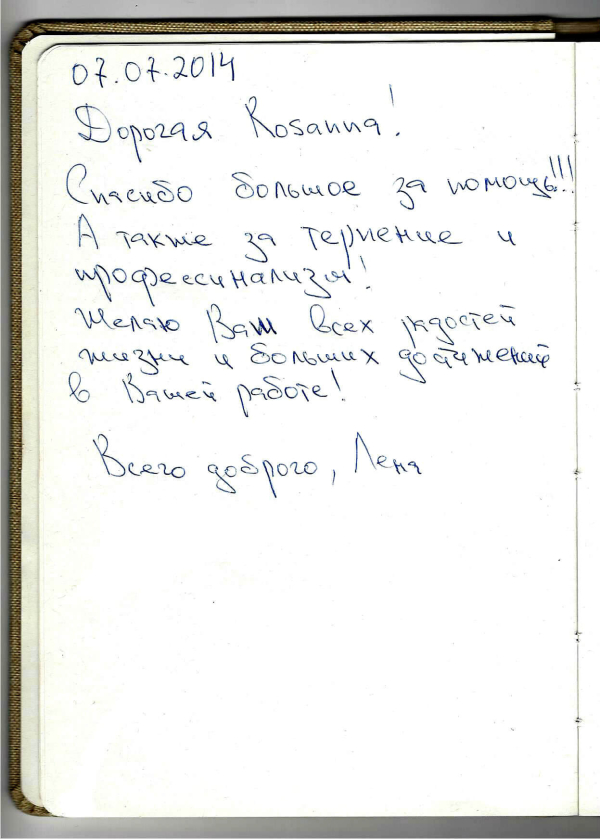 07.07.2014
Дорогая Rosanna!
Спасибо большое за помощь!!!
А также за терпение и
професcинализм!
Желаю Вам всех радостей
жизни и больших достижений
в Вашей работе!
Всего доброго, Лена